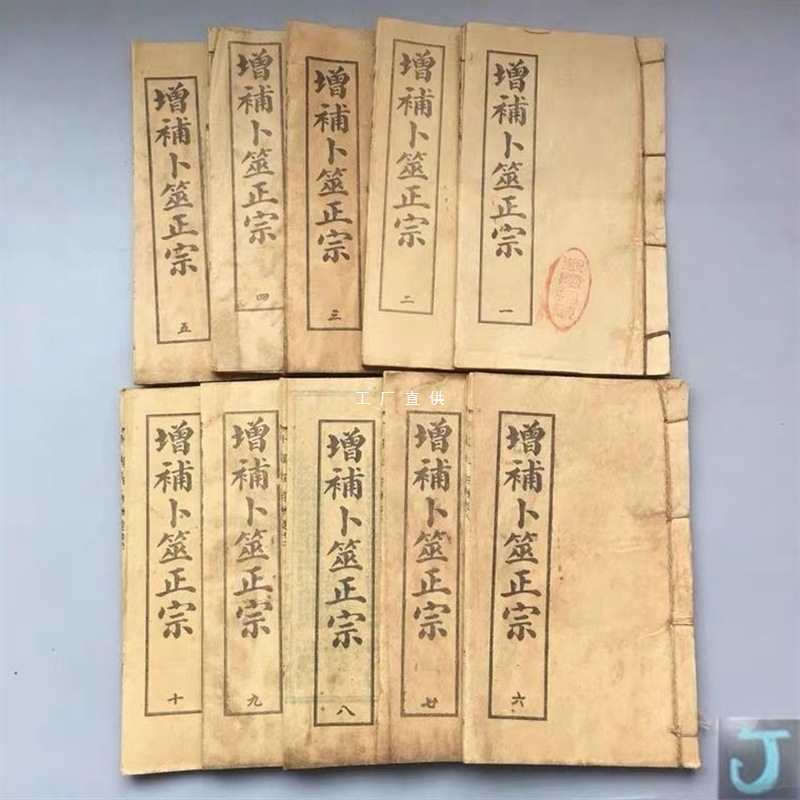 增補卜筮正宗 一
增補卜筮正宗 二
增補卜筮正宗 三
增補卜筮正宗 四
增補卜筮正宗 五
工厂直供
增補卜筮正宗 六
增補卜筮正宗 七
增補卜筮正宗 八
增補卜筮正宗 九
增補卜筮正宗 十
J